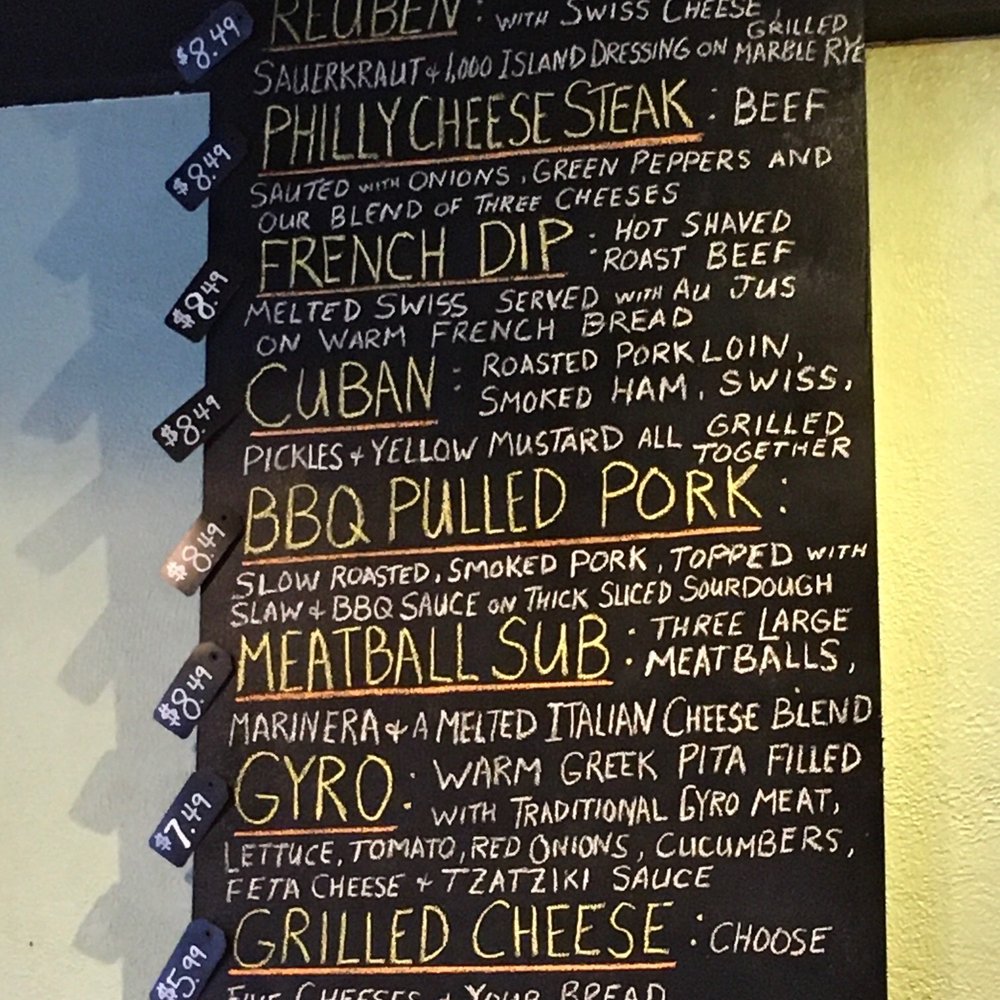 $8.49 REUBEN : WITH SWISS CHEESE,
SAUERKRAUT & 1,000 ISLAND DRESSING ON GRILLED MARBLE RYE
$8.49 PHILLY CHEESE STEAK : BEEF
SAUTED WITH ONIONS, GREEN PEPPERS AND
OUR BLEND OF THREE CHEESES
$8.49 FRENCH DIP : HOT SHAVED
ROAST BEEF
MELTED SWISS SERVED WITH AU JUS
ON WARM FRENCH BREAD
$8.49 CUBAN : ROASTED PORK LOIN,
SMOKED HAM, SWISS,
PICKLES & YELLOW MUSTARD ALL GRILLED TOGETHER
$8.49 BBQ PULLED PORK :
SLOW ROASTED, SMOKED PORK, TOPPED WITH
SLAW & BBQ SAUCE ON THICK SLICED SOURDOUGH
$8.49 MEATBALL SUB : THREE LARGE
MEATBALLS,
MARINERA & A MELTED ITALIAN CHEESE BLEND
$7.49 GYRO : WARM GREEK PITA FILLED
WITH TRADITIONAL GYRO MEAT,
LETTUCE, TOMATO, RED ONIONS, CUCUMBERS,
FETA CHEESE & TZATZIKI SAUCE
$5.99 GRILLED CHEESE : CHOOSE
FIVE CHEESES & YOUR BREAD